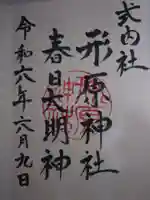 式内社
形原神社
春日大明神
令和六年六月九日